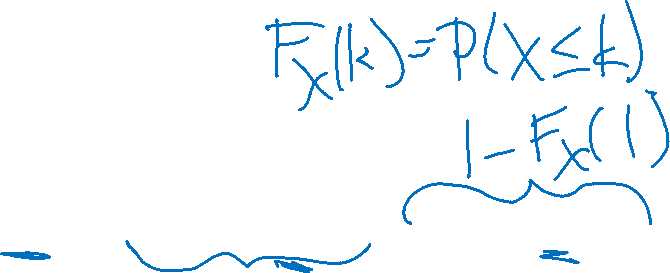 F_X(k) = P(X ≤ k)
1 - F_X(1)